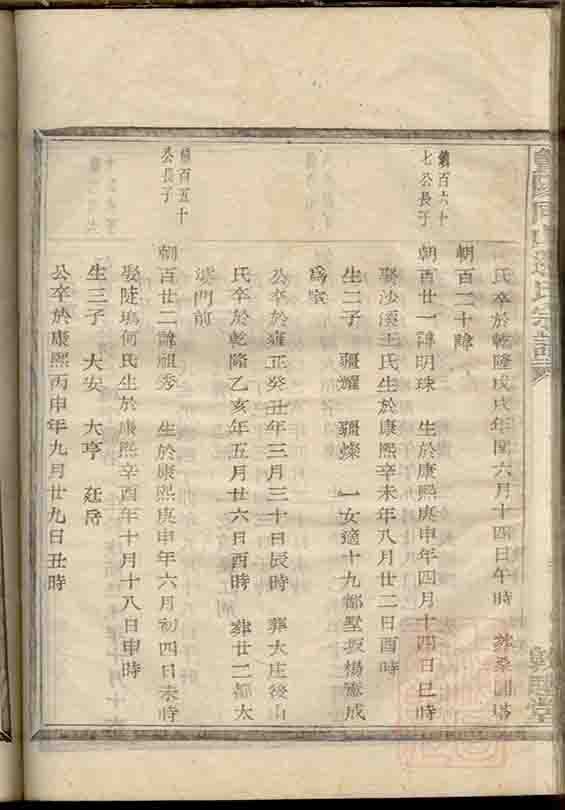 氏卒於乾隆戊戌年閏六月十四日午時 葬
朝百二十諱
朝百六十
七公長子
朝百廿一諱明珠 生於康熙庚申年四月十四日巳時
娶沙溪王氏生於康熙辛未年八月廿二日酉時
生二子 疆耀 疆燦 一女適十九都墅坂楊憲成
為室
公卒於雍正癸丑年三月三十日辰時 葬大庄後山
氏卒於乾隆乙亥年五月廿六日酉時 葬廿二都大
門前
朝百五十
公長子
朝百廿二諱祖秀 生於康熙庚申年六月初四日未時
娶陡塢何氏生於康熙辛酉年十月十八日申時
生三子 大安 大亨
公卒於康熙丙申年九月廿九日丑時
氏宗譜
敦睦堂